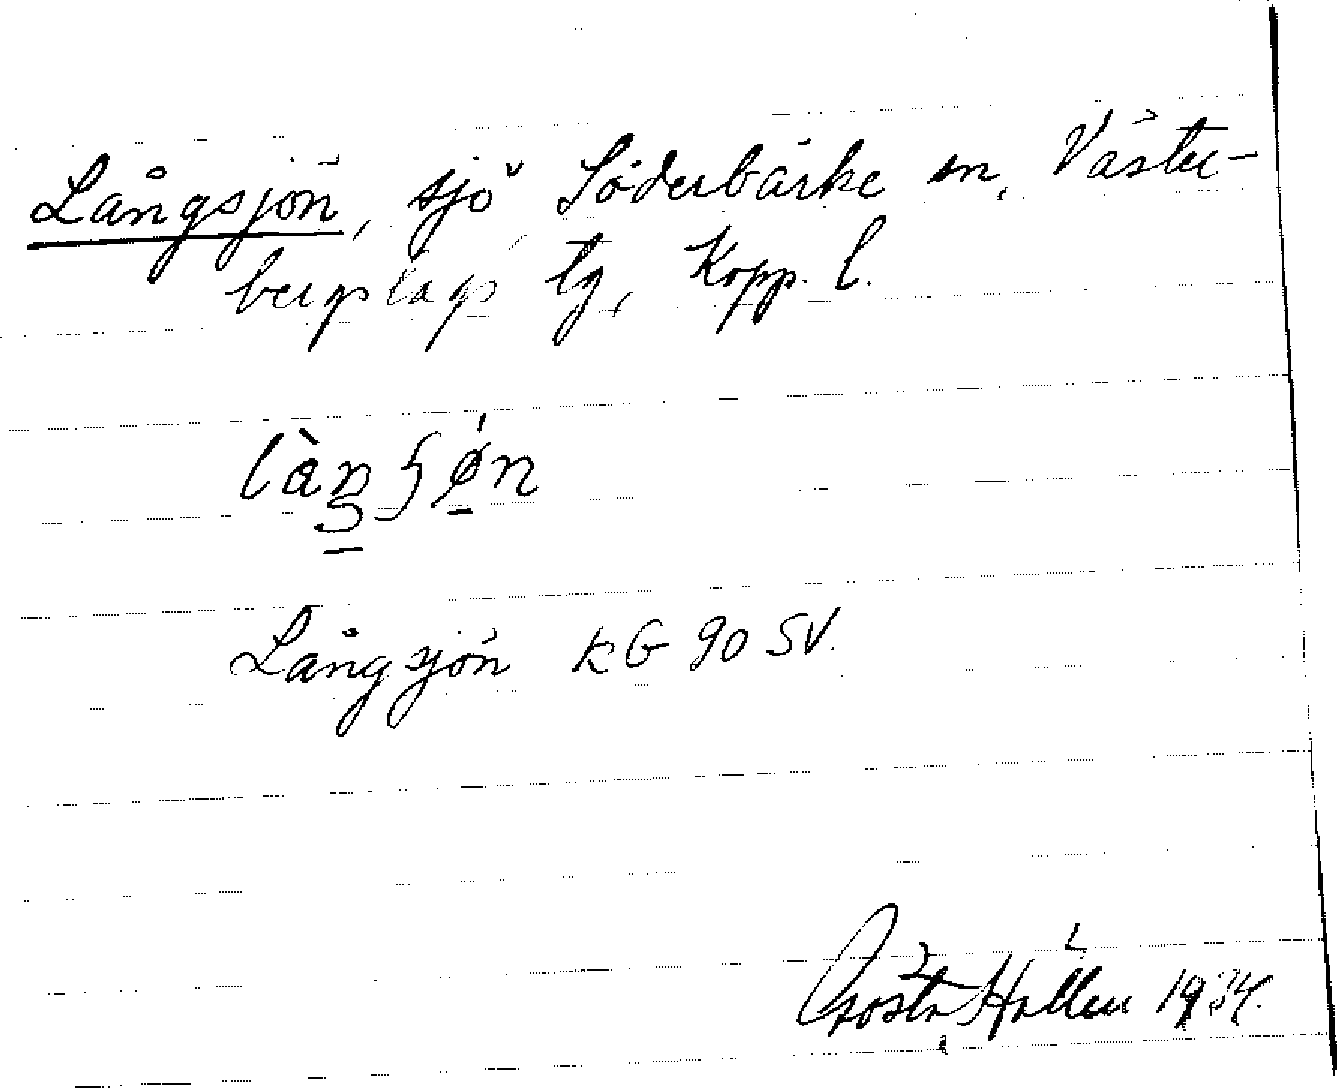 Långsjön, sjö Söderbärke sn, Väster-
bergslags tg, Kopp. l.
Långsjön KG 90 SV.
Gösta Hallén 1934.